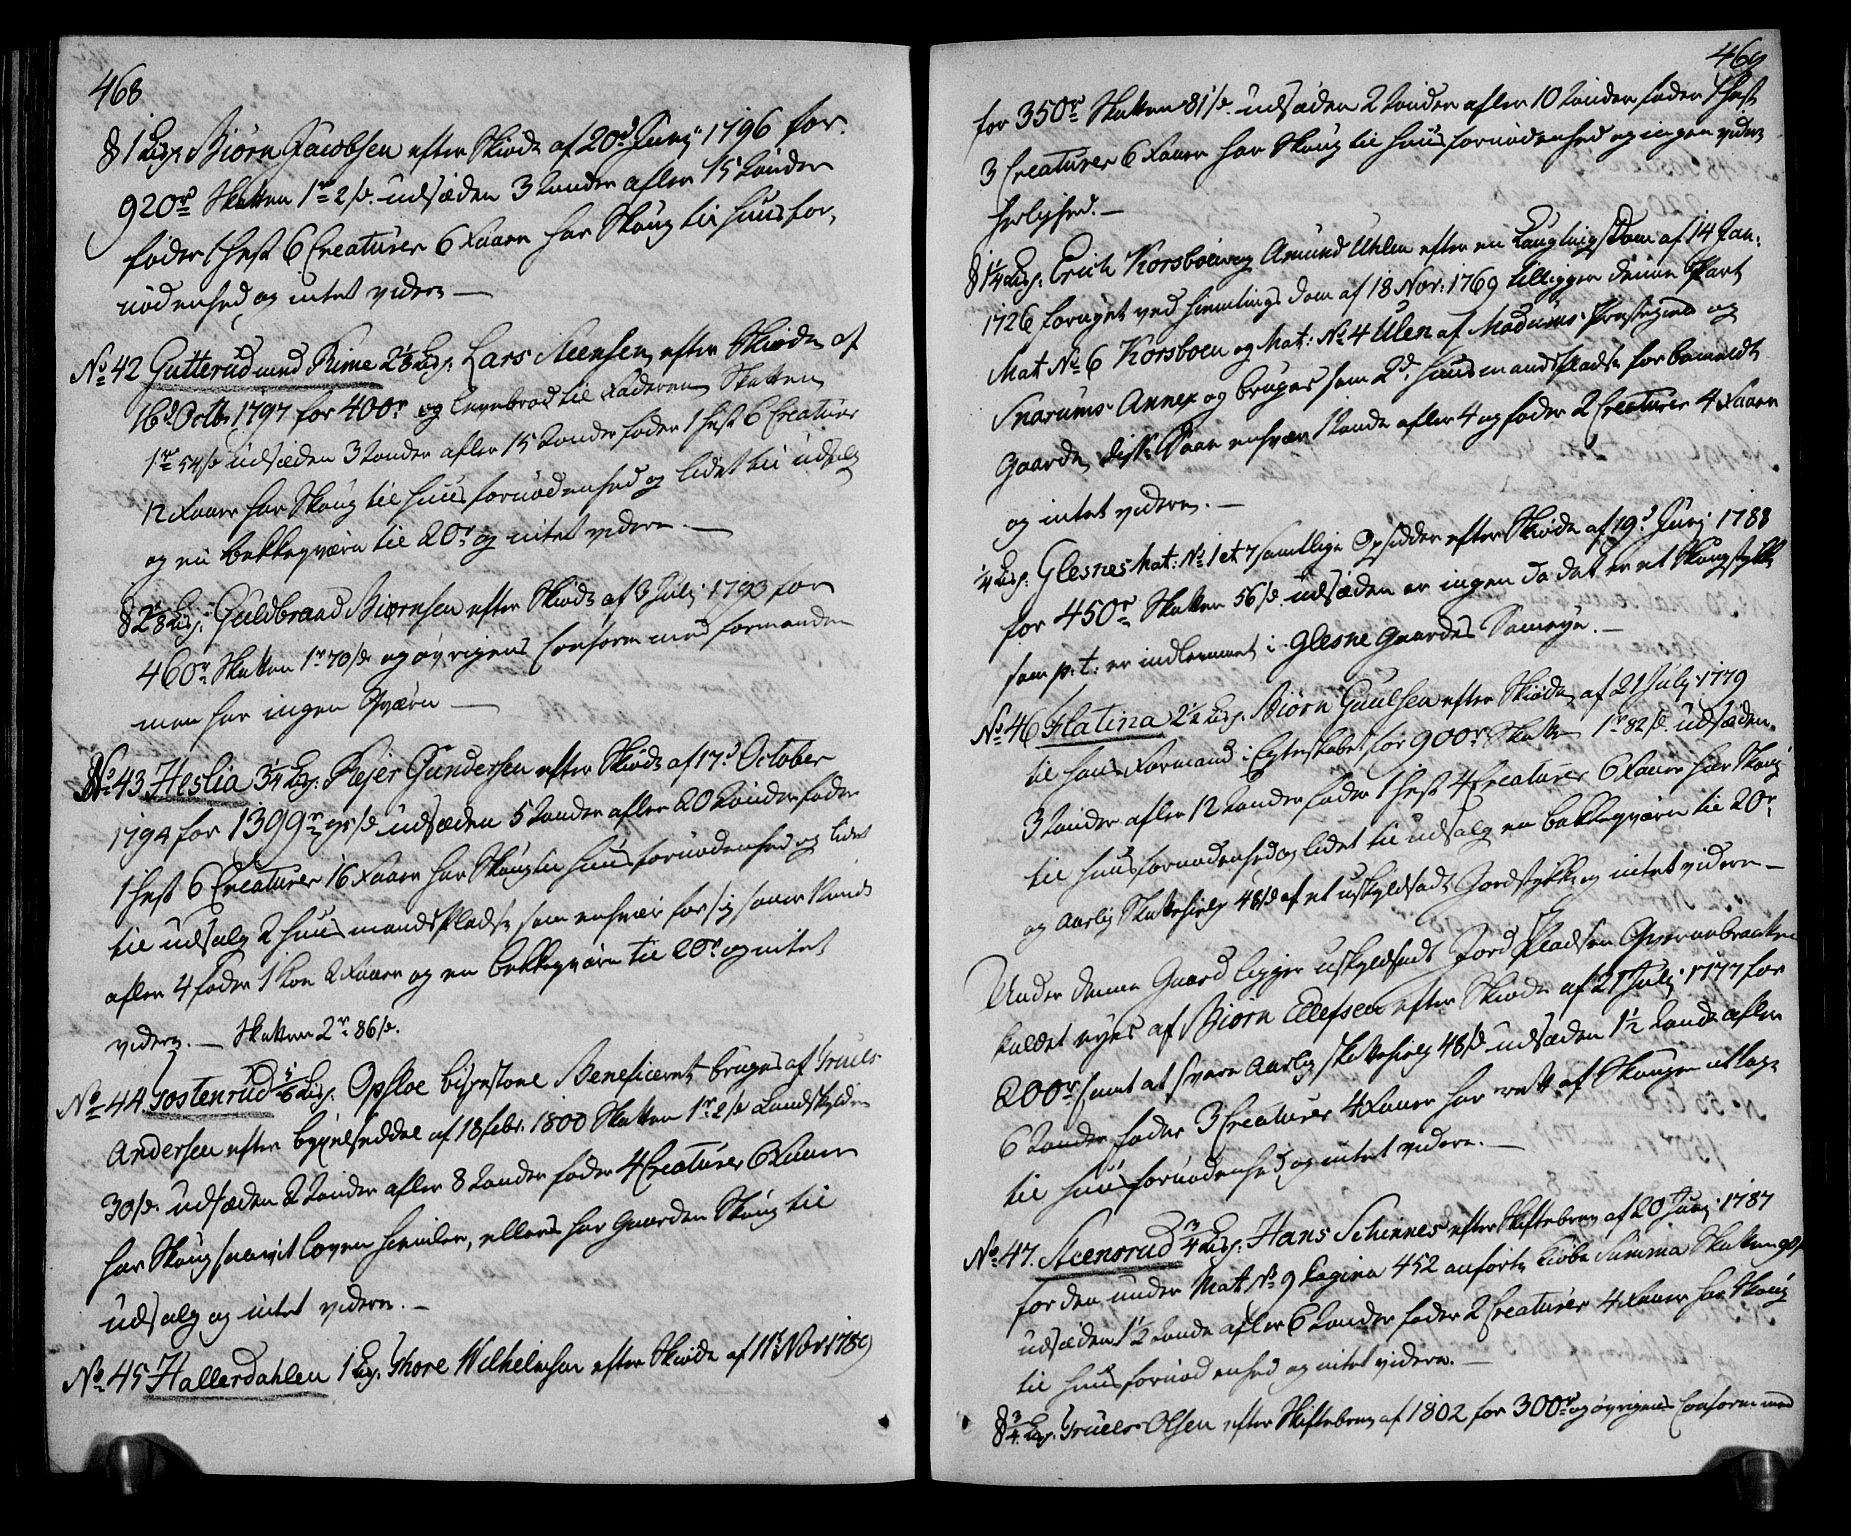 468
§ 1 Lisp. Biørn Jacobsen efter Skiøde af 20d Junj 1796 for
920rd Skatten 1rd 2 s. udsæden 3 Tønder afler 15 Tønder
føder 1 Hest 6 Creaturer 6 Faarer har Skoug til huusfor-
nødenhed og intet videre —
No 42 Gutterud med Rime 2 1/8 Lisp. Lars Steensen efter Skiøde af
16d Octb. 1797 for 400r og Levebrød til Faderen Skatten
1rd 54 s udsæden 3 Tønder afler 15 Tønder føder 1 hest 6 Creaturer
12 Faarer har Skoug til huusfornødenhed og lidet til udsalg
og en bekkeqværn til 20r og intet videre. —
§ 2 1/8 Lisp. Guldbrand Biørnsen efter Skiøde af 3 Julj 1793 for
460r Skatten 1rd 70 s og øvrigens Conform med formanden
men har ingen Qværn —
No 43 Heslia 3 1/4 Lisp. Rejer Gundersen efter Skiøde af 17d October
1794 for 1399rd 95 s udsæden 5 Tønder afler 20 Tønder føder
1 hest 6 Creaturer 16 Faarer har Skoug til huusfornødenhed og lidet
til udsalg 2 huusmandspladse som enhver for sig saaer 1 Tønde
afler 4 føder 1 Koe 2 Faarer og en bekkeqværn til 20r og intet
videre. — Skatten 2rd 86 s.
No 44 Tostenrud 5/6 Lisp. Opsloe bispestoel Beneficeret bruges af Truels
Andersen efter bygselseddel af 18 febr. 1800 Skatten 1rd 2 s Landskylden
30 s. udsæden 2 Tønder afler 8 Tønder føder 4 Creaturer 6 Faarer
har Skoug saavit loven hiemler, ellers har Gaarden Skoug til
udsalg og intet videre. —
No 45 Hallerdahlen 1 Lisp. Thore Wilhelmsen efter Skiøde af 11t Nov. 1789
469
for 350rd Skatten 81 s. udsæden 2 Tønder afler 10 Tønder føder 1 hest
3 Creaturer 6 Faarer har Skoug til huusfornødenhed og ingen videre
herlighed. —
§ 1 1/4 Lisp. Erich Korsboen og Amund Uhlen efter en Laugtings Dom af 14 Jan.
1726 forøget ved hiemtings Dom af 18 Nov. 1769 tilligger denne Part
Mat No 6 Korsboen og Mat: No 4 Ulen af Modums Præstegield og
Snarums Annex og bruges som 2de huusmandspladse for bemeldte
Gaarde, disse Saaer enhver 1 Tønde afler 4 og føder 2 Creaturer 4 Faarer
og intet videre. —
1/4 Lisp. Glesnes Mat: No 1 et 7 samtlige Opsidder efter Skiøde af 19d Junj 1788
for 450rd Skatten 56 s. udsæden er ingen da det er et Skougstykke
som p: t: er indlemmet i Glesne Gaardes Sameye. —
No 46 Flatina 2 1/2 Lisp. Biørn Paulsen efter Skiøde af 21 Julj 1779
til hans Formand i Egteskabet for 900rd Skatten 1rd 82 s. udsæden
3 Tønder afler 12 Tønder føder 1 hest 4 Creaturer 6 Faarer har Skoug
til huusfornødenhed og lidet til udsalg en bekkeqværn til 20r
og Aarlig Skattehielp 48 s af et uskyldsadt Jordstykke og intet videre —
Under denne Gaard ligger uskyldsadt Jord Pladsen Qvernebraaten
kaldet eyes af Biørn Ellefsen efter Skiøde af 21 Julj 1777 for
200rd samt at svare Aarlig Skattehielp 48 s udsæden 1 1/2 Tønde afler
6 Tønder føder 3 Creaturer 4 Faarer har ret af Skougen at tage
til huusfornødenhed og intet videre. —
No 47. Steensrud 3/4 Lisp. Hans Schinnes efter Skiftebrev af 20 Junj 1787
for den under Mat No 9 Pagina 452 anførte Kiøbe Summa Skatten 90 s
udsæden 1 1/2 Tønde afler 6 Tønder føder 2 Creaturer 4 Faarer har Skoug
til huusfornødenhed og intet videre. —
§ 3/4 Lisp. Truels Olsen efter Skiftebrev af 1802 for 300rd og øvrigens Conform med